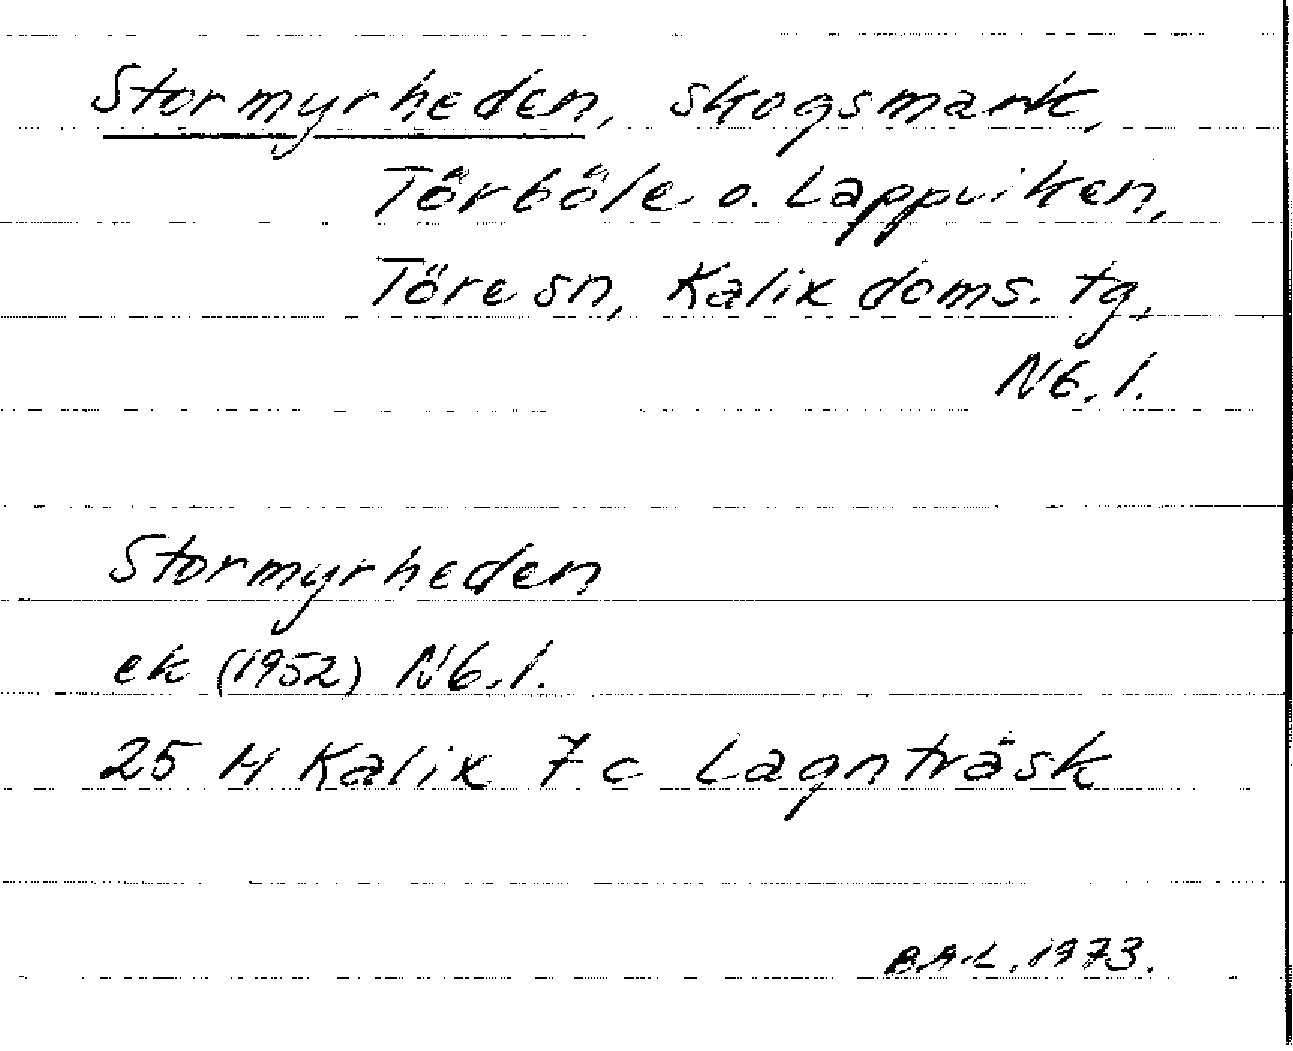 Stormyrheden, skogsmark,
Törböle o. Lappviken,
Töre sn, Kalix doms. tg,
Nb. l.
Stormyrheden
ek (1952) Nb. l.
25 M Kalix 7 c Lagnträsk
B.A.L. 1973.